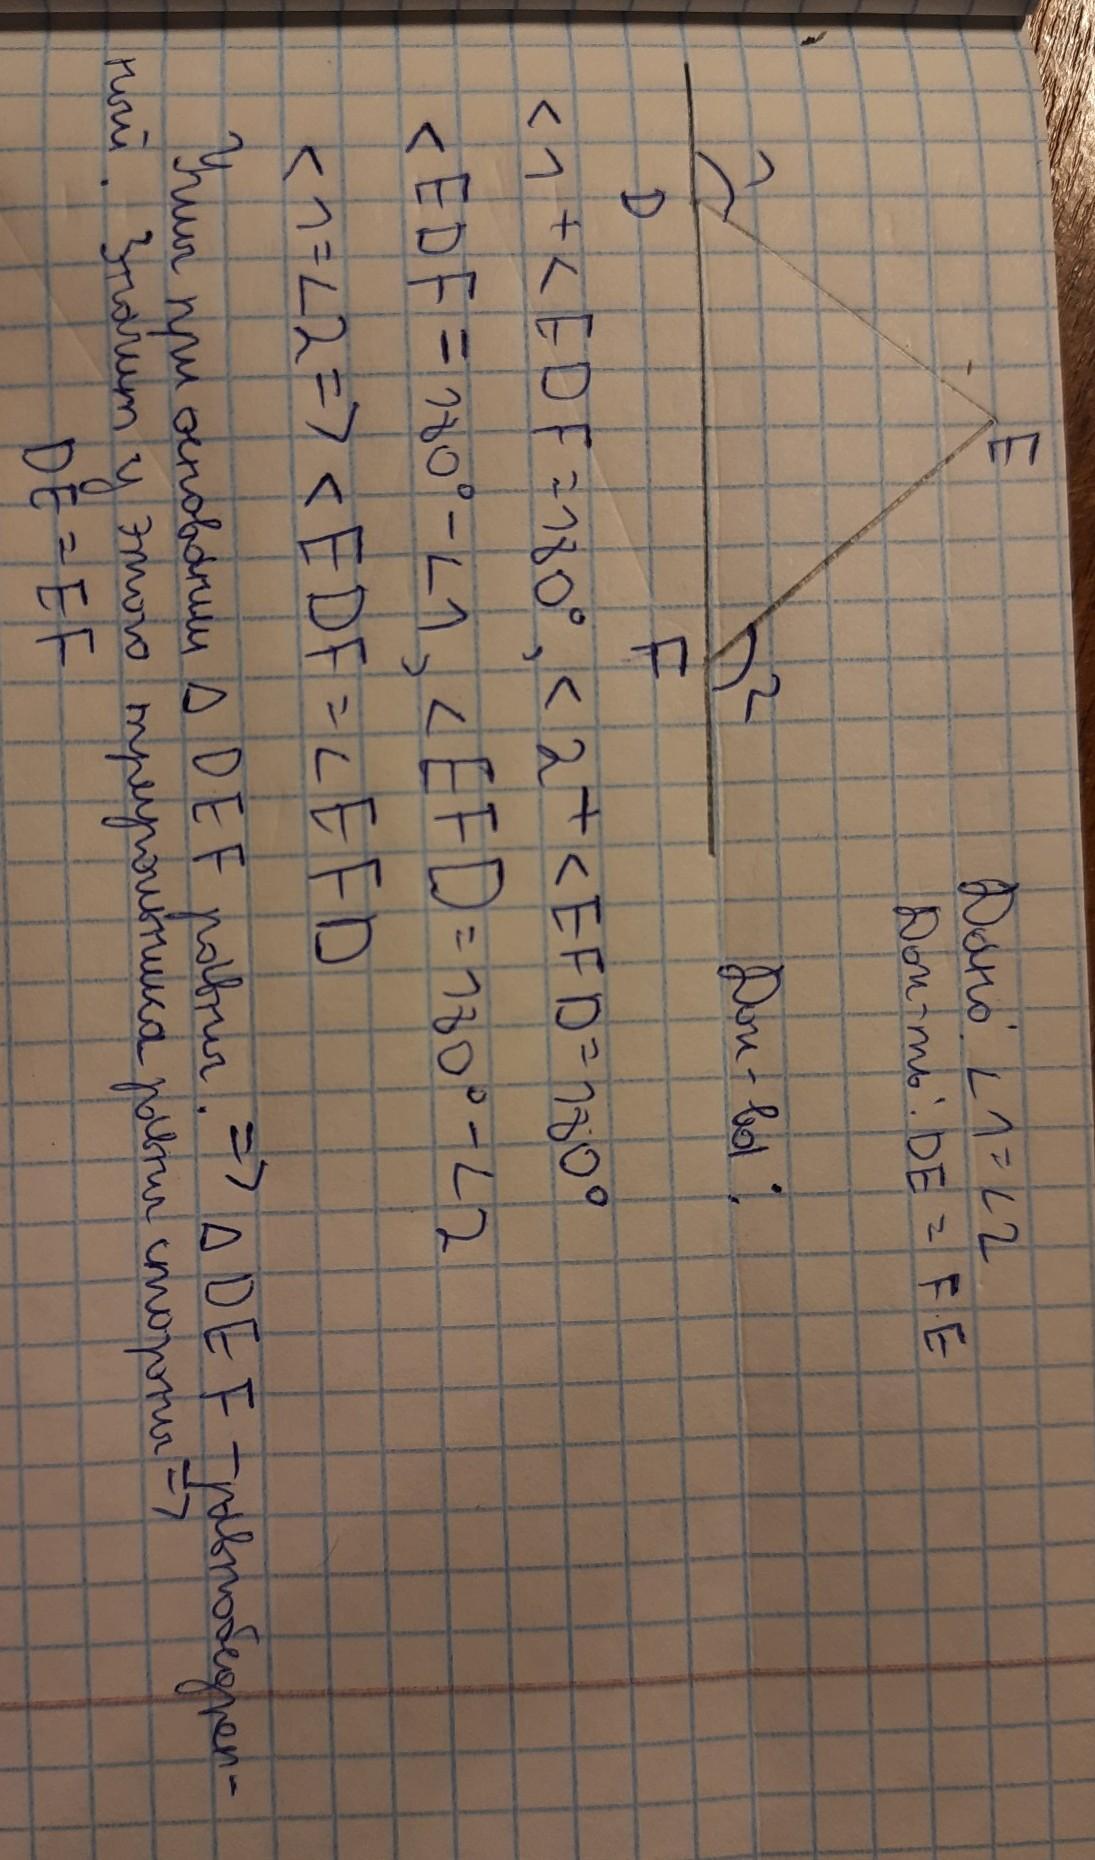 E
1
2
D
F
Дано: ∠1=∠2
Док-ть: DE = FE
Док-во:
<1+<EDF=180°, <2+<EFD=180°
<EDF=180°-∠1, <EFD=180°-∠2
<1=∠2=> <EDF=∠EFD
Углы при основании Δ DEF равны. => Δ DEF - равнобедрен-
ный. Значит у этого треугольника равны стороны =>
DE=EF